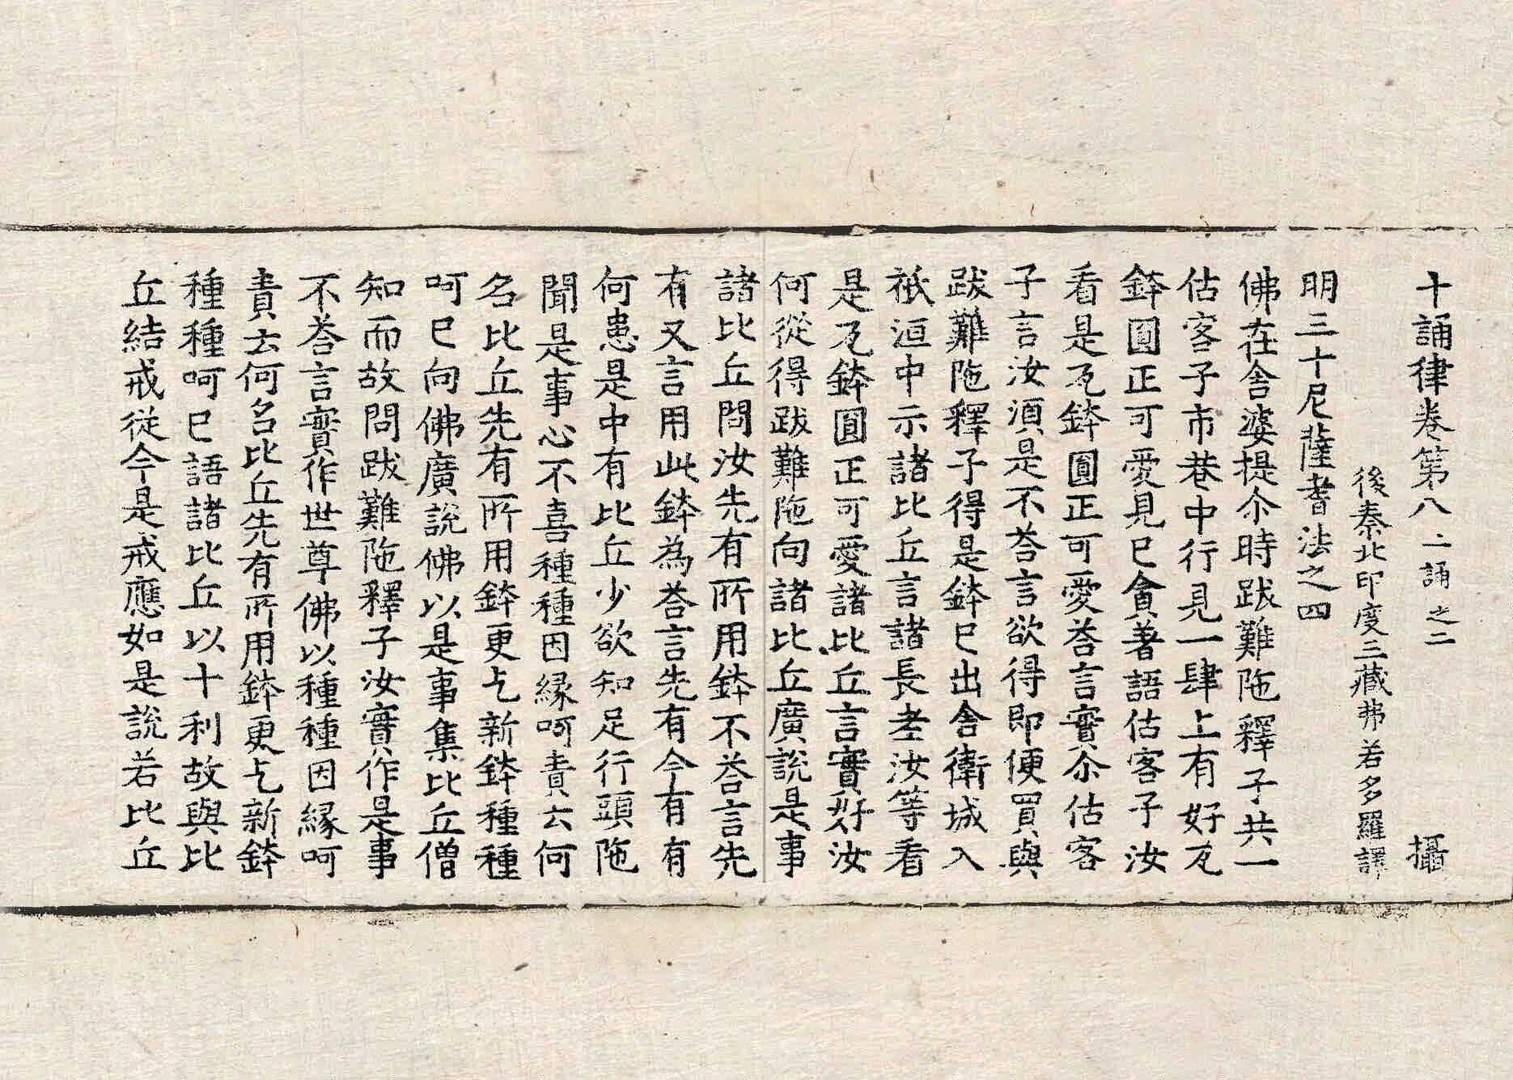 十誦律卷第八 二誦之二 攝
後秦北印度三藏弗若多羅譯
明三十尼薩耆法之四
佛在舍婆提尒時跋難陁釋子共一
估客子市巷中行見一肆上有好瓦
鉢圓正可愛見已貪著語估客子汝
看是瓦鉢圓正可愛荅言實尒估客
子言汝湏是不荅言欲得即便買與
跋難陁釋子得是鉢已出舍衛城入
祇洹中示諸比丘言諸長老汝等看
是瓦鉢圓正可愛諸比丘言實好汝
何從得跋難陁向諸比丘廣說是事
諸比丘問汝先有所用鉢不荅言先
有又言用此鉢為荅言先有今有有
何患是中有比丘少欲知足行頭陁
聞是事心不喜種種因緣呵責云何
名比丘先有所用鉢更乞新鉢種種
呵已向佛廣說佛以是事集比丘僧
知而故問跋難陁釋子汝實作是事
不荅言實作世尊佛以種種因緣呵
責云何名比丘先有所用鉢更乞新鉢
種種呵已語諸比丘以十利故與比
丘結戒從今是戒應如是說若比丘